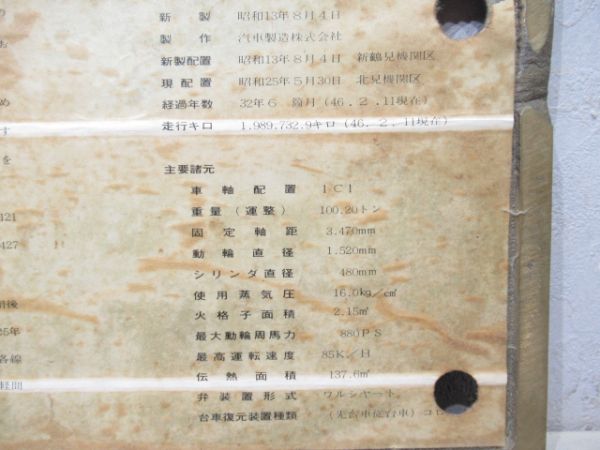 の
新製 昭和13年8月4日
お
製作 汽車製造株式会社
新製配置 昭和13年8月4日 新鶴見機関区
現配置 昭和25年5月30日 北見機関区
め
経過年数 32年6 月(46.2.11現在)
す
走行キロ 1,989,732.9キロ(46.2.11現在)
を
主要諸元
車軸配置 1C1
421
重量(運整) 100.20トン
427
固定軸距 3.470mm
動輪直径 1.520mm
シリンダ直径 480mm
使用蒸気圧 16.0kg/cm²
前後
火格子面積 2.15m²
25年
最大動輪周馬力 880PS
各線
最高運転速度 85K/H
軽間
伝熱面積 137.6m²
弁装置形式 ワルシヤート
台車復元装置種類 (先台車従台車)コロ